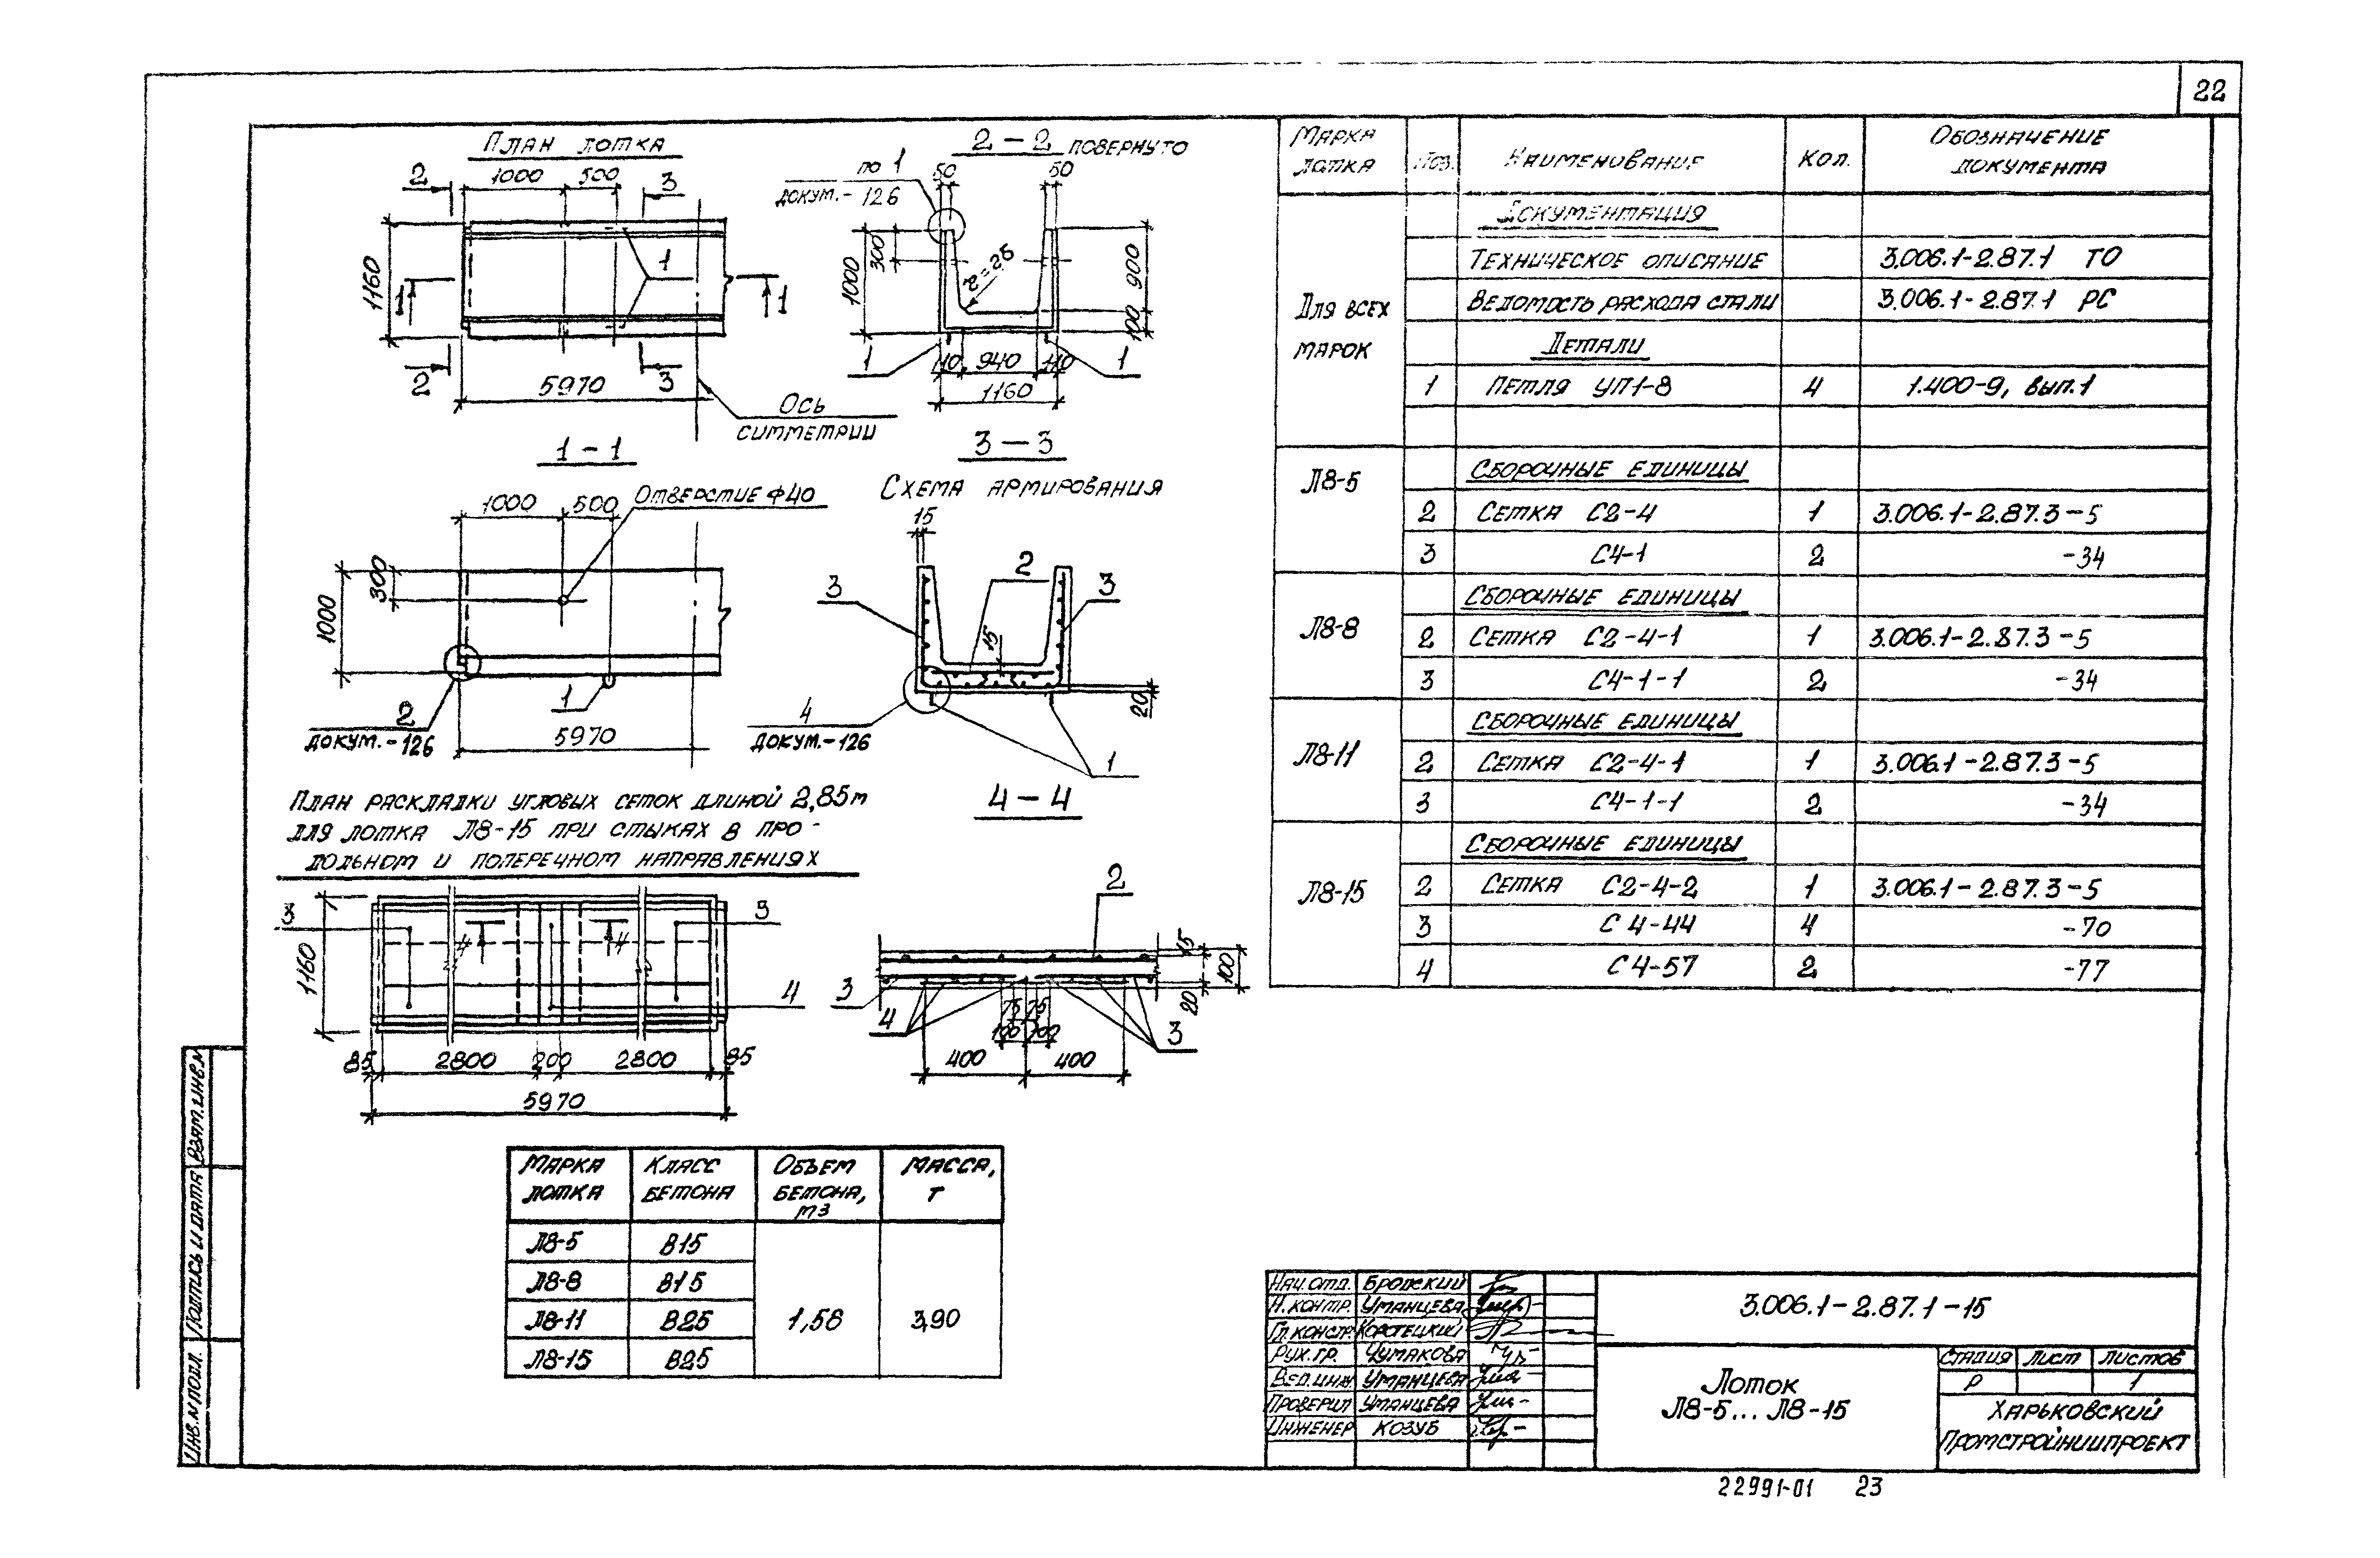 22
План лотка
2 1000 500 3
1160
1
1 1
2 3
5970
Ось
симметрии
2-2 повернуто
по 1
докум.-126
50 50
300
1000
r=25
900
100
1 1
110 940 110
1160
1-1
1000 500 Отверстие Ф40
300
1000
1
2
докум.-126
5970
3-3
Схема армирования
15
3 2 3
15
20
4
докум.-126
1
План раскладки угловых сеток длиной 2,85м
для лотка Л8-15 при стыках в про-
дольном и поперечном направлениях
3 3
4 4
1160
4
85 2800 200 2800 85
5970
4-4
2
15
100
20
3
4
75 75
100 100
3
400 400
Марка лотка Класс бетона Объем бетона, м3 Масса, т
Л8-5 В15
Л8-8 В15
Л8-11 В25 1,56 3,90
Л8-15 В25
Марка лотка Поз. Наименование Кол. Обозначение документа
Документация
Техническое описание 3.006.1-2.87.1 ТО
Для всех марок
Ведомость расхода стали 3.006.1-2.87.1 РС
Детали
1 Петля УП1-8 4 1.400-9, вып.1
Л8-5 Сборочные единицы
2 Сетка С2-4 1 3.006.1-2.87.3-5
3 С4-1 2 -34
Л8-8 Сборочные единицы
2 Сетка С2-4-1 1 3.006.1-2.87.3-5
3 С4-1-1 2 -34
Л8-11 Сборочные единицы
2 Сетка С2-4-1 1 3.006.1-2.87.3-5
3 С4-1-1 2 -34
Л8-15 Сборочные единицы
2 Сетка С2-4-2 1 3.006.1-2.87.3-5
3 С4-44 4 -70
4 С4-57 2 -77
Нач.отд. Бродский
Н.контр. Уманцева
Гл.констр. Коротецкий
Рук.гр. Чумакова
Вед.инж Уманцева
Проверил Уманцева
Инженер Козуб
3.006.1-2.87.1-15
Лоток
Л8-5...Л8-15
Стадия Лист Листов
Р 1
Харьковский
Промстройниипроект
Взам.инв.№
Подпись и дата
Инв.№подл.
22991-01 23